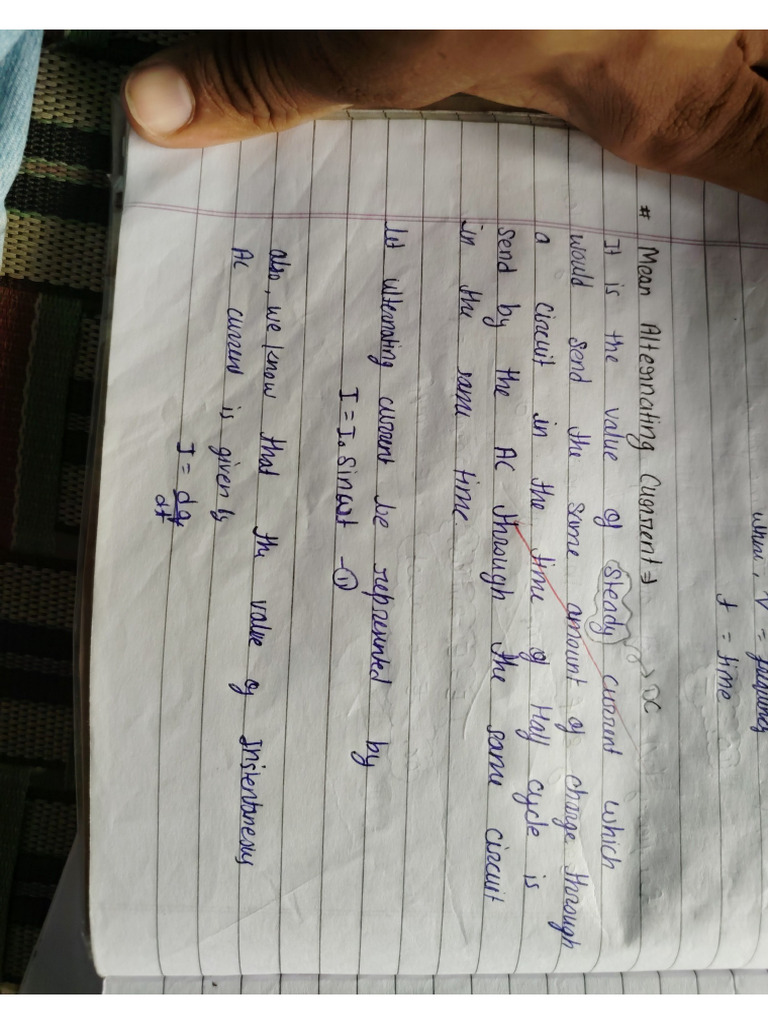 where, ν = frequency
t = time
# Mean Alternating Current ⇒
→ DC
It is the value of steady current which
would send the same amount of charge through
a circuit in the time of Half cycle is
send by the AC through the same circuit
in the same time.
let alternating current be represented by
I = I₀ Sinωt -①
also, we know that the value of Instentaneous
AC current is given by
I = dq/dt